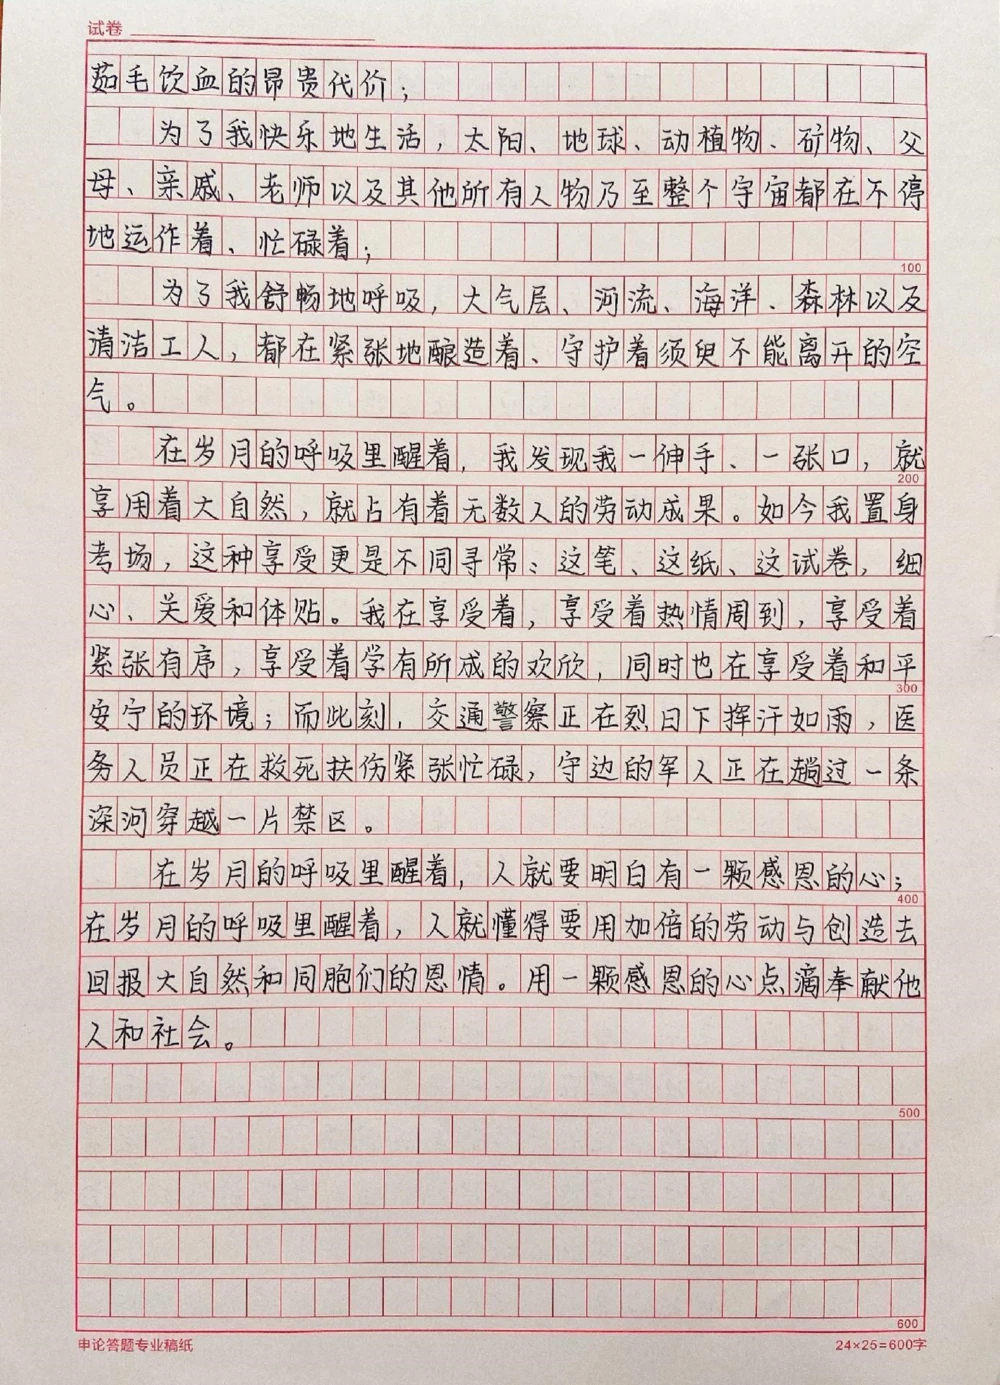 试卷
茹毛饮血的昂贵代价；
为了我快乐地生活，太阳、地球、动植物、矿物、父
母、亲戚、老师以及其他所有人物乃至整个宇宙都在不停
地运作着、忙碌着；
100
为了我舒畅地呼吸，大气层、河流、海洋、森林以及
清洁工人，都在紧张地酿造着、守护着须臾不能离开的空
气。
在岁月的呼吸里醒着，我发现我一伸手、一张口，就
200
享用着大自然，就占有着无数人的劳动成果。如今我置身
考场，这种享受更是不同寻常：这笔、这纸、这试卷，细
心、关爱和体贴。我在享受着，享受着热情周到，享受着
紧张有序，享受着学有所成的欢欣，同时也在享受着和平
300
安宁的环境；而此刻，交通警察正在烈日下挥汗如雨，医
务人员正在救死扶伤紧张忙碌，守边的军人正在趟过一条
深河穿越一片禁区。
在岁月的呼吸里醒着，人就要明白有一颗感恩的心；
400
在岁月的呼吸里醒着，人就懂得要用加倍的劳动与创造去
回报大自然和同胞们的恩情。用一颗感恩的心点滴奉献他
人和社会。
500
600
申论答题专业稿纸
24×25=600字